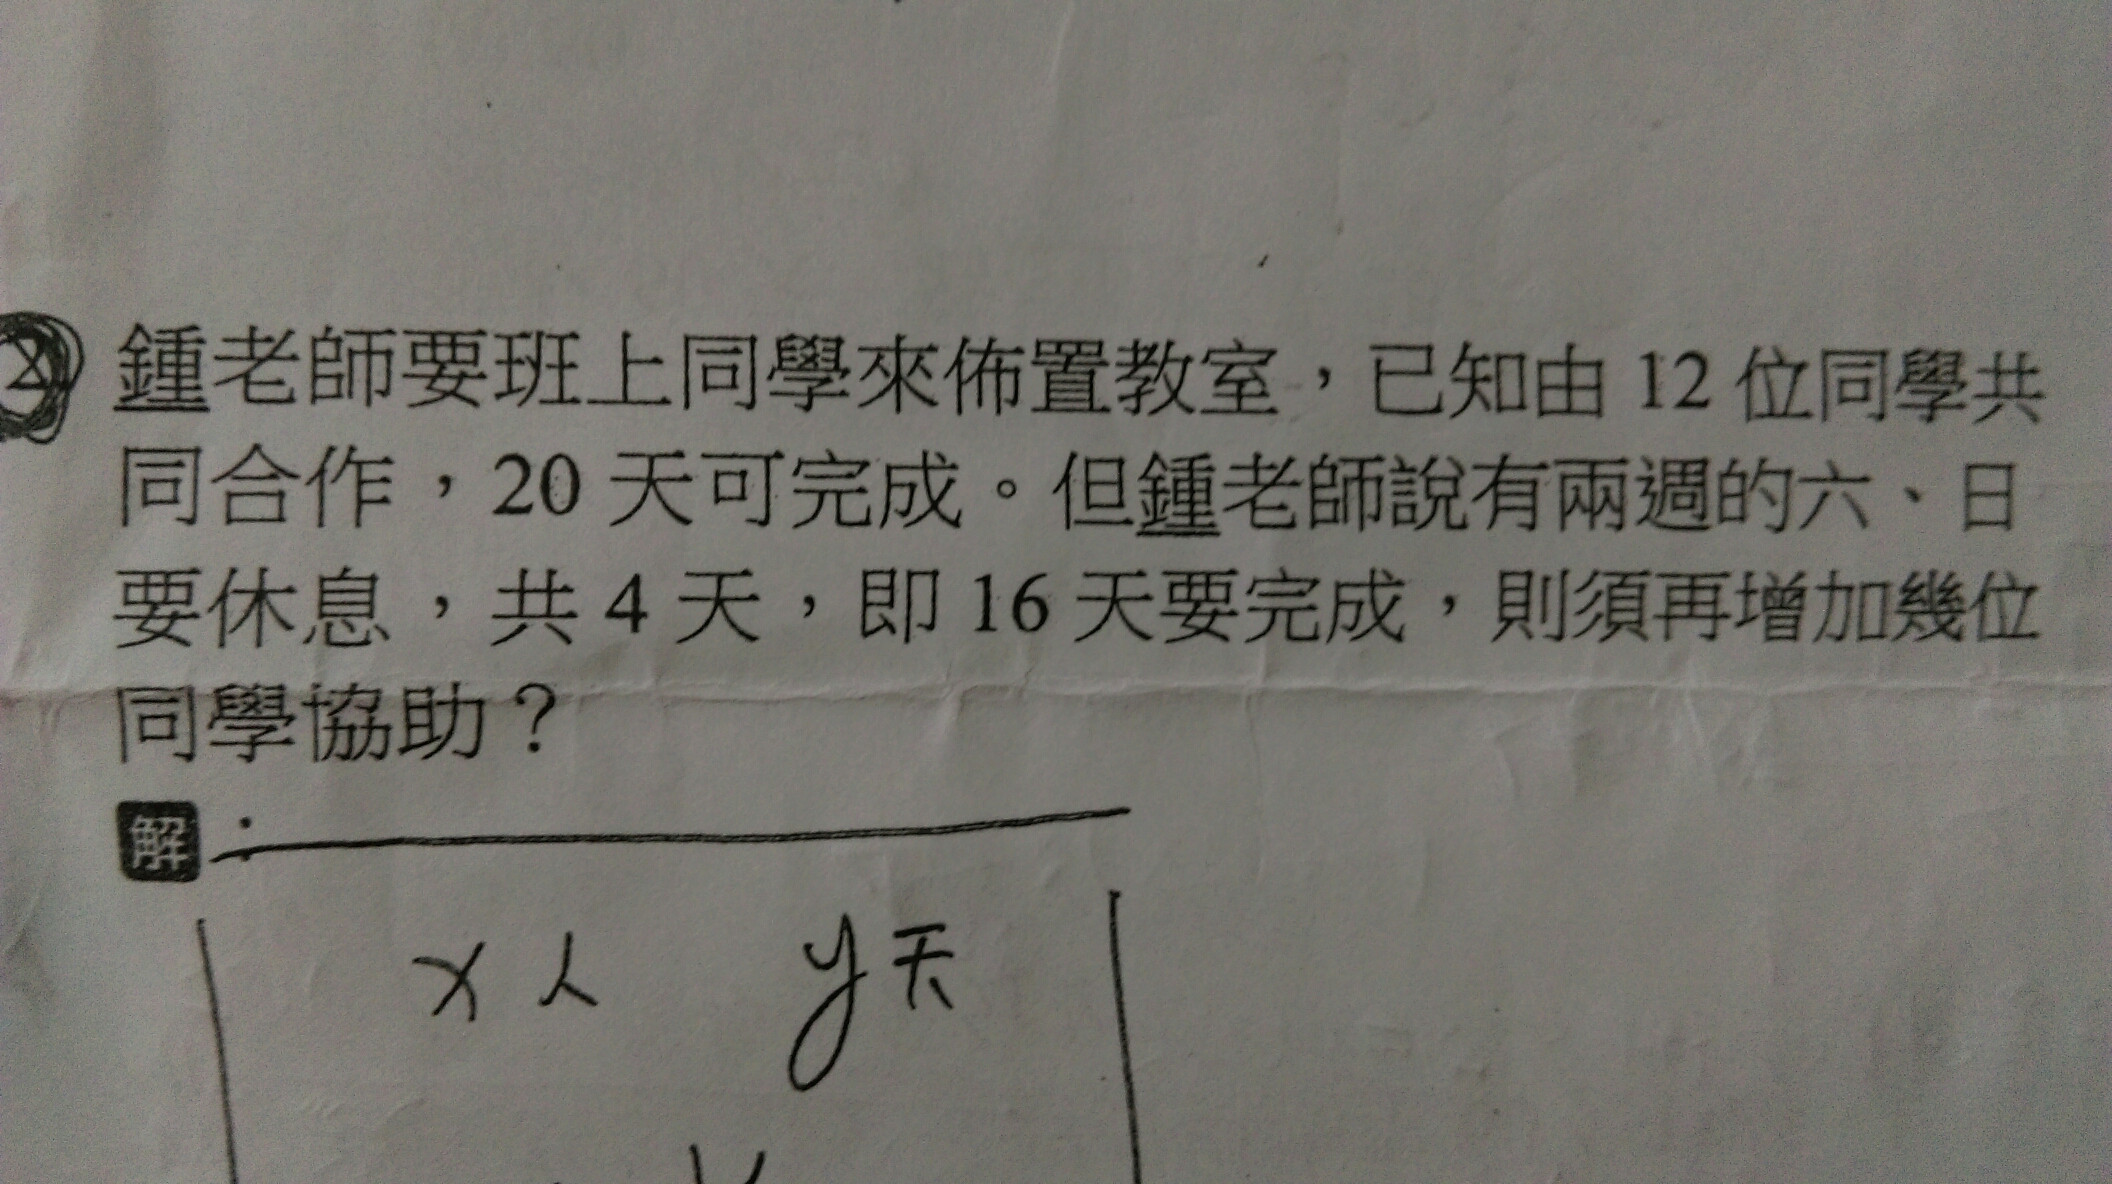 鍾老師要班上同學來佈置教室，已知由 12 位同學共
同合作，20 天可完成。但鍾老師說有兩週的六、日
要休息，共 4 天，即 16 天要完成，則須再增加幾位
同學協助？
解：
x人 y天